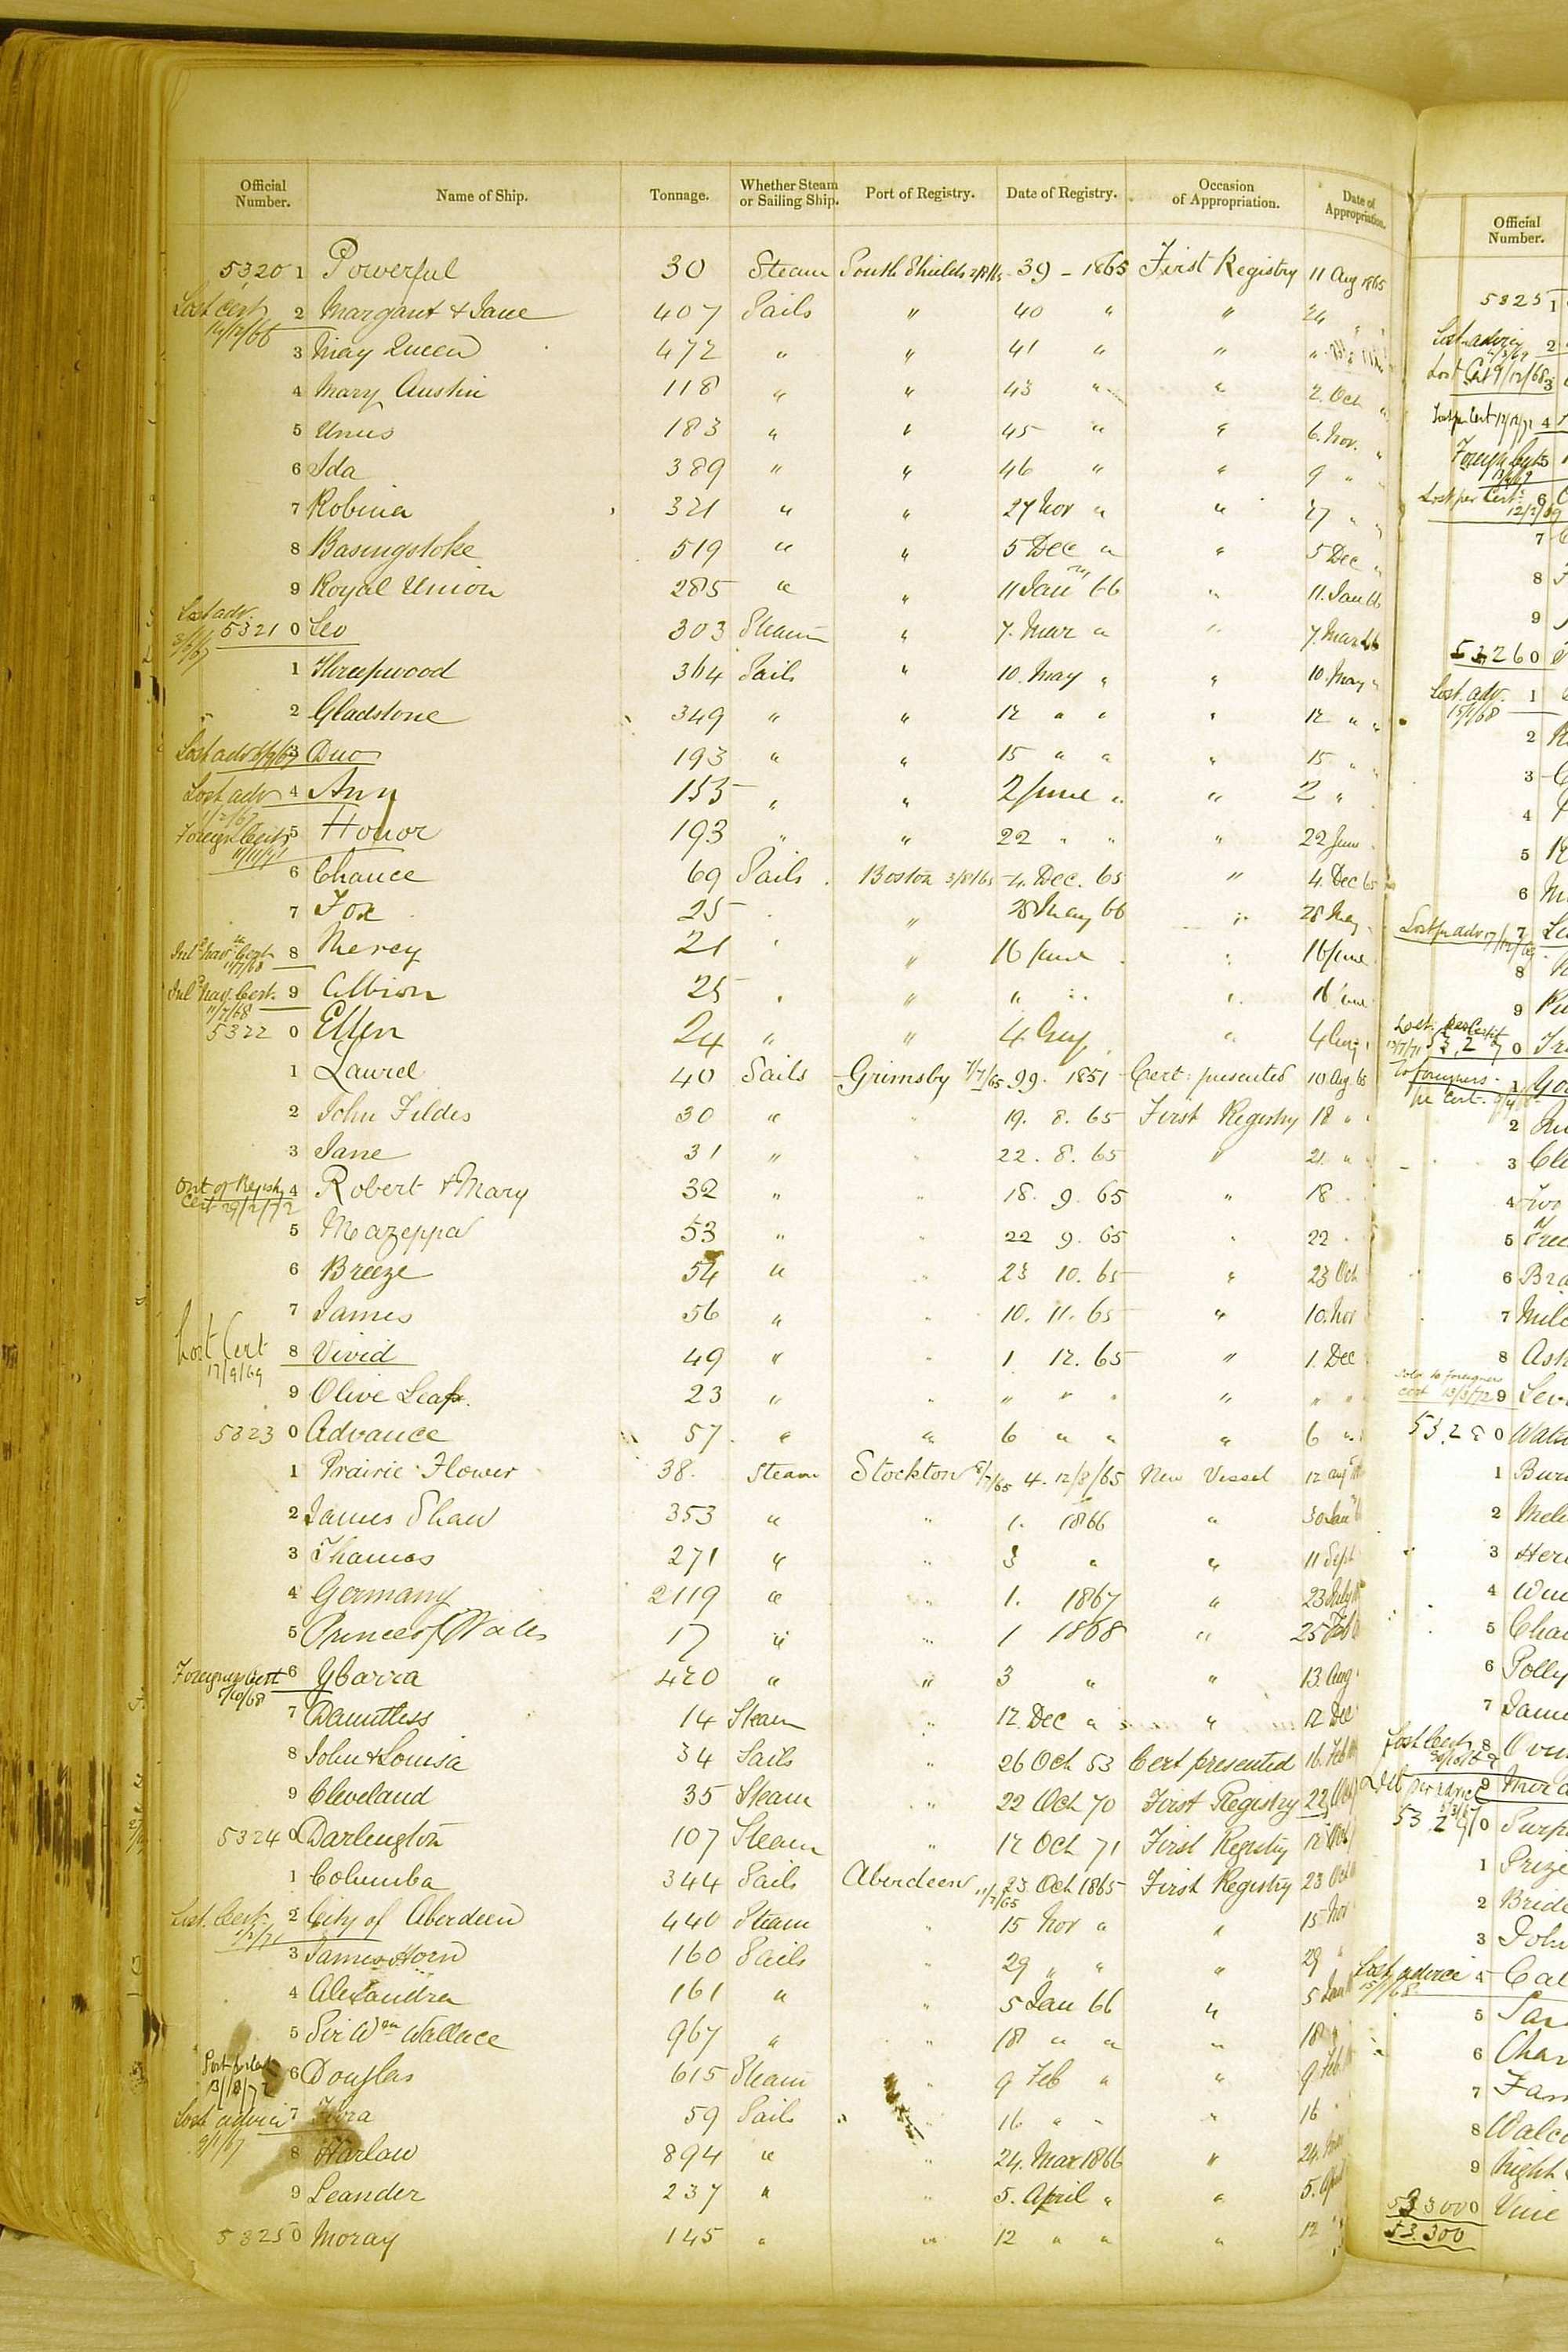 Official Number. Name of Ship. Tonnage. Whether Steam or Sailing Ship. Port of Registry. Date of Registry. Occasion of Appropriation. Date of Appropriation.
5320 1 Powerful 30 Steam South Shields 39 - 1865 First Registry 11 Aug 1865
Lost Cert 14/12/66 2 Margaret & Jane 407 Sails " 40 " " 24 "
3 May Queen 472 " " 41 " " "
4 Mary Austin 118 " " 43 " " 2. Oct "
5 Unus 183 " " 45 " " 6. Nov. "
6 Ida 389 " " 46 " " 9 " "
7 Robina 321 " " 27 Nov " " 27 " "
8 Basingstoke 519 " " 5 Dec " " 5 Dec "
9 Royal Union 285 " " 11 Jan 66 " 11. Jan 66
Lost adv. 3/6/67 5321 0 Leo 303 Steam " 7. Mar " " 7. Mar 66
1 Threepwood 364 Sails " 10. May " " 10. May "
2 Gladstone 349 " " 12 " " " 12 " "
Lost adv 3 Duo 193 " " 15 " " " 15 " "
Lost adv 4 Ann 155 " " 2 June " " 2 "
Foreign Cert 5 Honor 193 " " 22 " " " 22 June
6 Chance 69 Sails Boston 3/8/65 4. Dec. 65 " 4. Dec 65
7 Fox 25 " 28 May 66 " 28 May
8 Mercy 21 " " 16 June " 16 June
11/7/68 9 Albion 25 " " " " " 16 June
5322 0 Ellen 24 " " 4. Aug " 4 Aug
1 Laurel 40 Sails Grimsby 7/7/65 99. 1851 Cert: presented 10 Aug 65
2 John Fildes 30 " " 19. 8. 65 First Registry 18 " "
3 Jane 31 " 22. 8. 65 " 21. "
Out of Regisly Cert 29/2/72 4 Robert & Mary 32 " " 18. 9. 65 " 18
5 Mazeppa 53 " " 22 9. 65 " 22
6 Breeze 54 " " 23 10. 65 " 23 Oct
7 James 56 " " 10. 11. 65 " 10. Nov
Lost Cert 17/9/69 8 Vivid 49 " " 1 12. 65 " 1. Dec
9 Olive Leaf. 23 " " " " " " " "
5323 0 Advance 57 " " 6 " " " 6 "
1 Prairie Flower 38. Steam Stockton 8/7/65 4. 12/8/65 New Vessel 12 Aug
2 James Shaw 353 " " 1. 1866 " 30 Jan
3 Thames 271 " " 3 " " 11 Sept
4 Germany 2119 " " 1. 1867 " 23 July
5 Prince of Wales 17 " " 1 1868 " 25 Feb
Foreigners Cert 5/10/68 6 Ybarra 420 " " 3 " " 13. Aug
7 Dauntless 14 Steam " 12. Dec " " 12 Dec
8 John & Louisa 34 Sails " 26 Oct 53 Cert presented 16. Feb
9 Cleveland 35 Steam " 22 Oct 70 First Registry 22 Oct
5324 0 Darlington 107 Steam " 12 Oct 71 First Registry 12 Oct
1 Columba 344 Sails Aberdeen 11/7/65 23. Oct 1865 First Registry 23 Oct
Lost. Cert. 2 City of Aberdeen 440 Steam " 15 Nov " " 15 Nov
3 James Horn 160 Sails " 29 " " " 29 "
4 Alexandra 161 " " 5 Jan 66 " 5 Jan
5 Sir Wm Wallace 967 " " 18 " " " 18 "
13/8/72 6 Douglas 615 Steam " 9 Feb " " 9 Feb
Lost advice 9/1/67 7 Flora 59 Sails " 16 " " " 16
8 Harlaw 894 " " 24. Mar 1866 " 24.
9 Leander 237 " " 5. April " " 5. April
5325 0 Moray 145 " " 12 " " " 12
Official Number.
5325 1
Lost advice 2
Lost Cert 9/12/68 3
Lost per Cert 4
Foreign Cert 5
Lost per Cert: 6
7
8
9
53260
Lost. adv. 1
2
3
4
5
6
Lost pr adv 7
8
9
53270
To foreigners 1
2
3 Cle
4 Two
5 Free
6 Bra
7
8 Ash
Sold to foreigners Cert 13/3/72 9
53280
1
2
3
4
5
6 Polly
7
Lost Cert 8
Lost per advice 9
53290
1 Prize
2 Bride
3 John
Lost advice 4
5
6
7
8
9 Night
533000 Vine
53.300